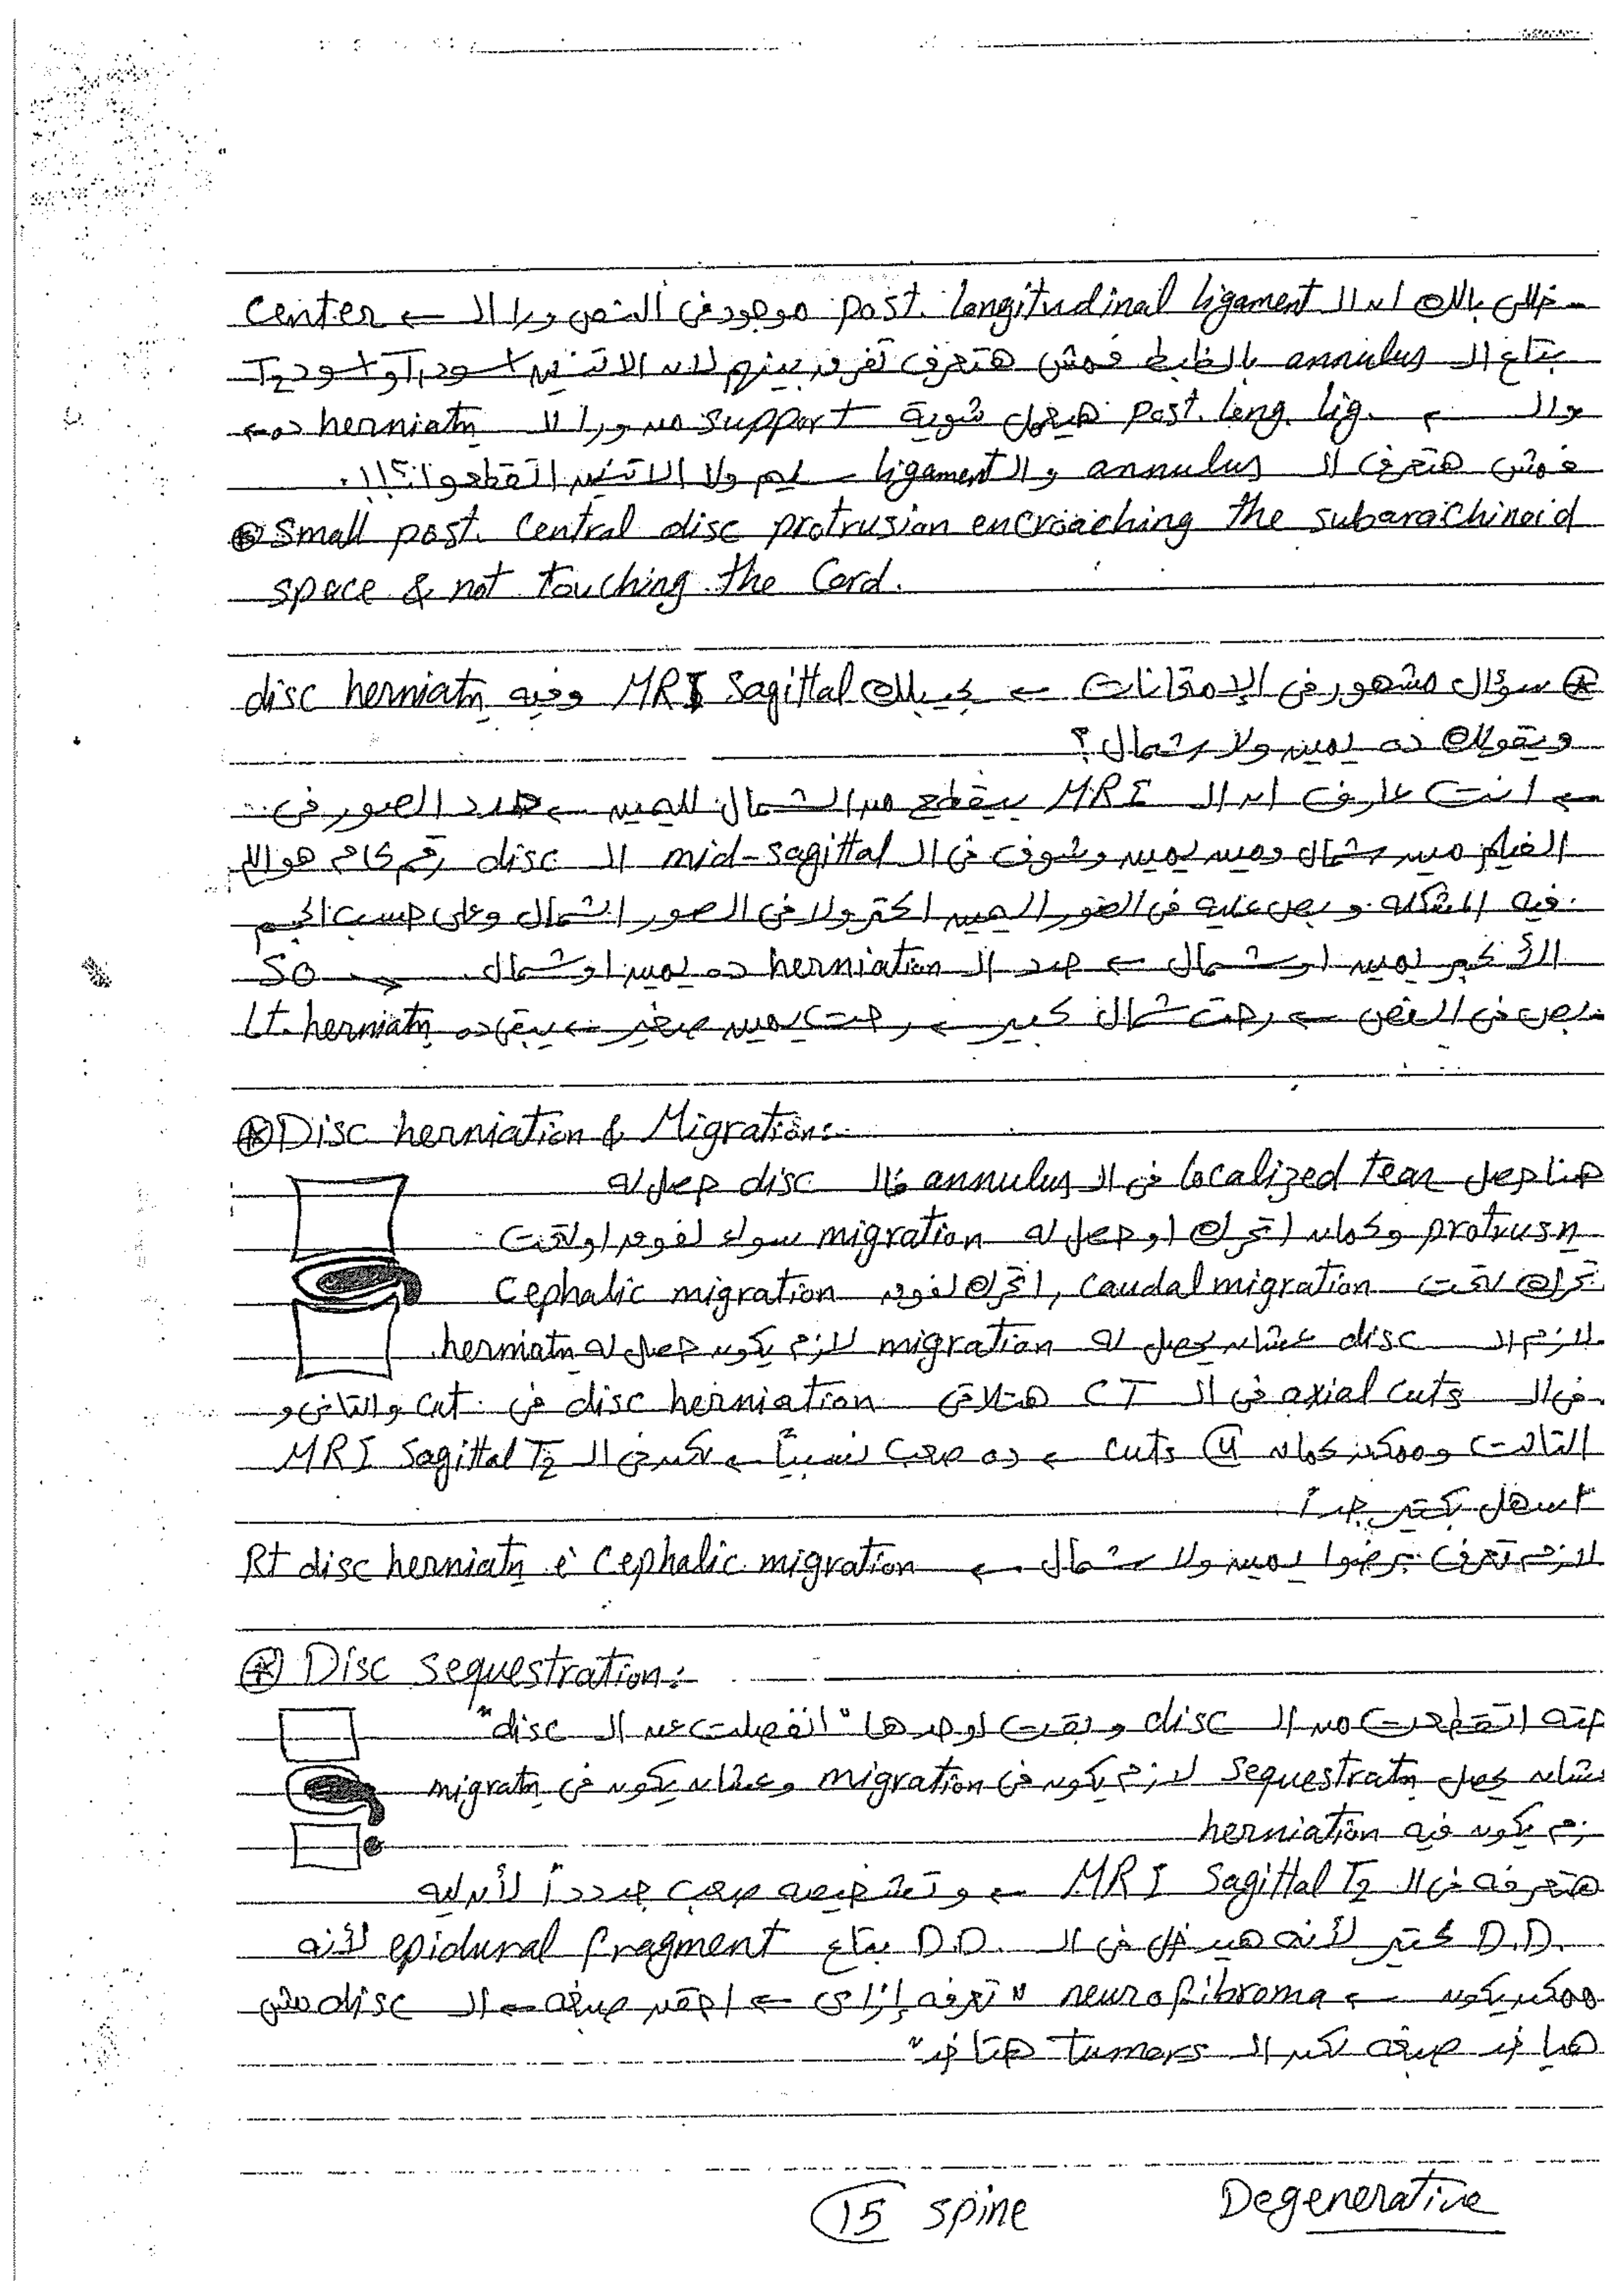 خللى بالك ان ال post. longitudinal ligament موجود فى النص ورا ال ← center
بتاع ال annulus بالظبط فمش هتعرف تفرق بينهم لان الاتنين اسود T1 و اسود T2
وال post. long. lig. هيعمل شوية support من ورا لل herniatn ده ←
فمش هتعرف ال annulus وال ligament سليم ولا الاتنين اتقطعوا؟!!.
⊛ Small post. Central disc protrusion encroaching the subarachinoid
space & not touching the Cord.
⊛ سؤال مشهور فى الإمتحانات ← يجيبلك MRI Sagittal وفيه disc herniatn
ويقولك ده يمين ولا شمال؟
← انت عارف ان ال MRI بيقطع من الشمال لليمين ← حدد الصور فى..
الفيلم مين شمال ومين يمين وشوف فى ال mid-sagittal ال disc رقم كام هو اللى
فيه المشكله وبص عليه فى الصور اليمين اكتر ولا فى الصور الشمال وعلى حسب الحجم
الأكبر يمين او شمال ← حدد ال herniation ده يمين او شمال ← so
بص فى النص ← رحت شمال كبير ← رحت يمين صغير ← يبقى ده Lt. herniatn
⊛ Disc herniation & Migration:-
هنا حصل localized tear فى ال annulus فال disc حصل له
protrusn وكمان اتحرك او حصل له migration سواء لفوق او لتحت
تحرك لتحت caudal migration , اتحرك لفوق Cephalic migration
لازم ال disc عشان يحصل له migration لازم يكون حصل له herniatn.
فى ال axial cuts فى ال CT هتلاقى disc herniation فى cut. والتانى و
التالت وممكن كمان 4 cuts ← ده صعب نسبياً ← لكن فى ال MRI Sagittal T2
اسهل بكتير جداً
لازم تعرف برضوا يمين ولا شمال ← Rt disc herniatn c̄ Cephalic migration
⊛ Disc sequestration:-
حته اتقطعت من ال disc وبقت لوحدها "انفصلت عن ال disc"
شان يحصل sequestratn لازم يكون فى migration وعشان يكون فى migratn
زم يكون فيه herniation
هتعرفه فى ال MRI Sagittal T2 ← وتشخيصه صعب جدداً لأن ليه
D.D. كتير لأنه هيدخل فى ال D.D. بتاع epidural fragment لأنه
ممكن يكون ← neurofibroma "تعرفه إزاى ← احقن صبغه ← ال disc مش
هياخد صبغه لكن ال tumors هتاخد"
15 spine Degenerative